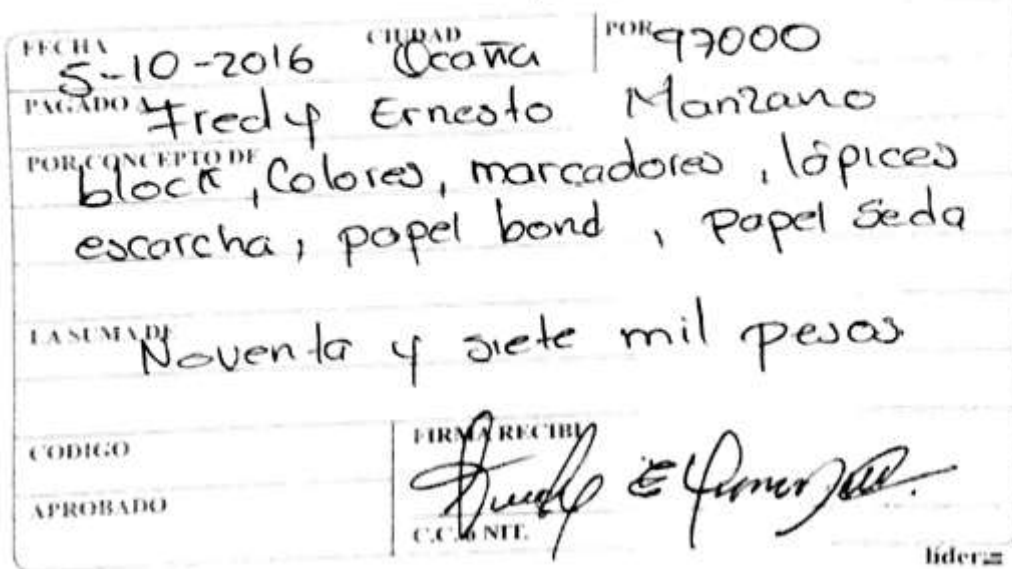 FECHA 5-10-2016 CIUDAD Ocaña POR 97000
PAGADO A Fredy Ernesto Manzano
POR CONCEPTO DE block, Colores, marcadores, lápices
escarcha, papel bond, papel seda
LA SUMA DE Noventa y siete mil pesos
CODIGO FIRMA RECIBI
APROBADO
C.C. o NIT.
líder